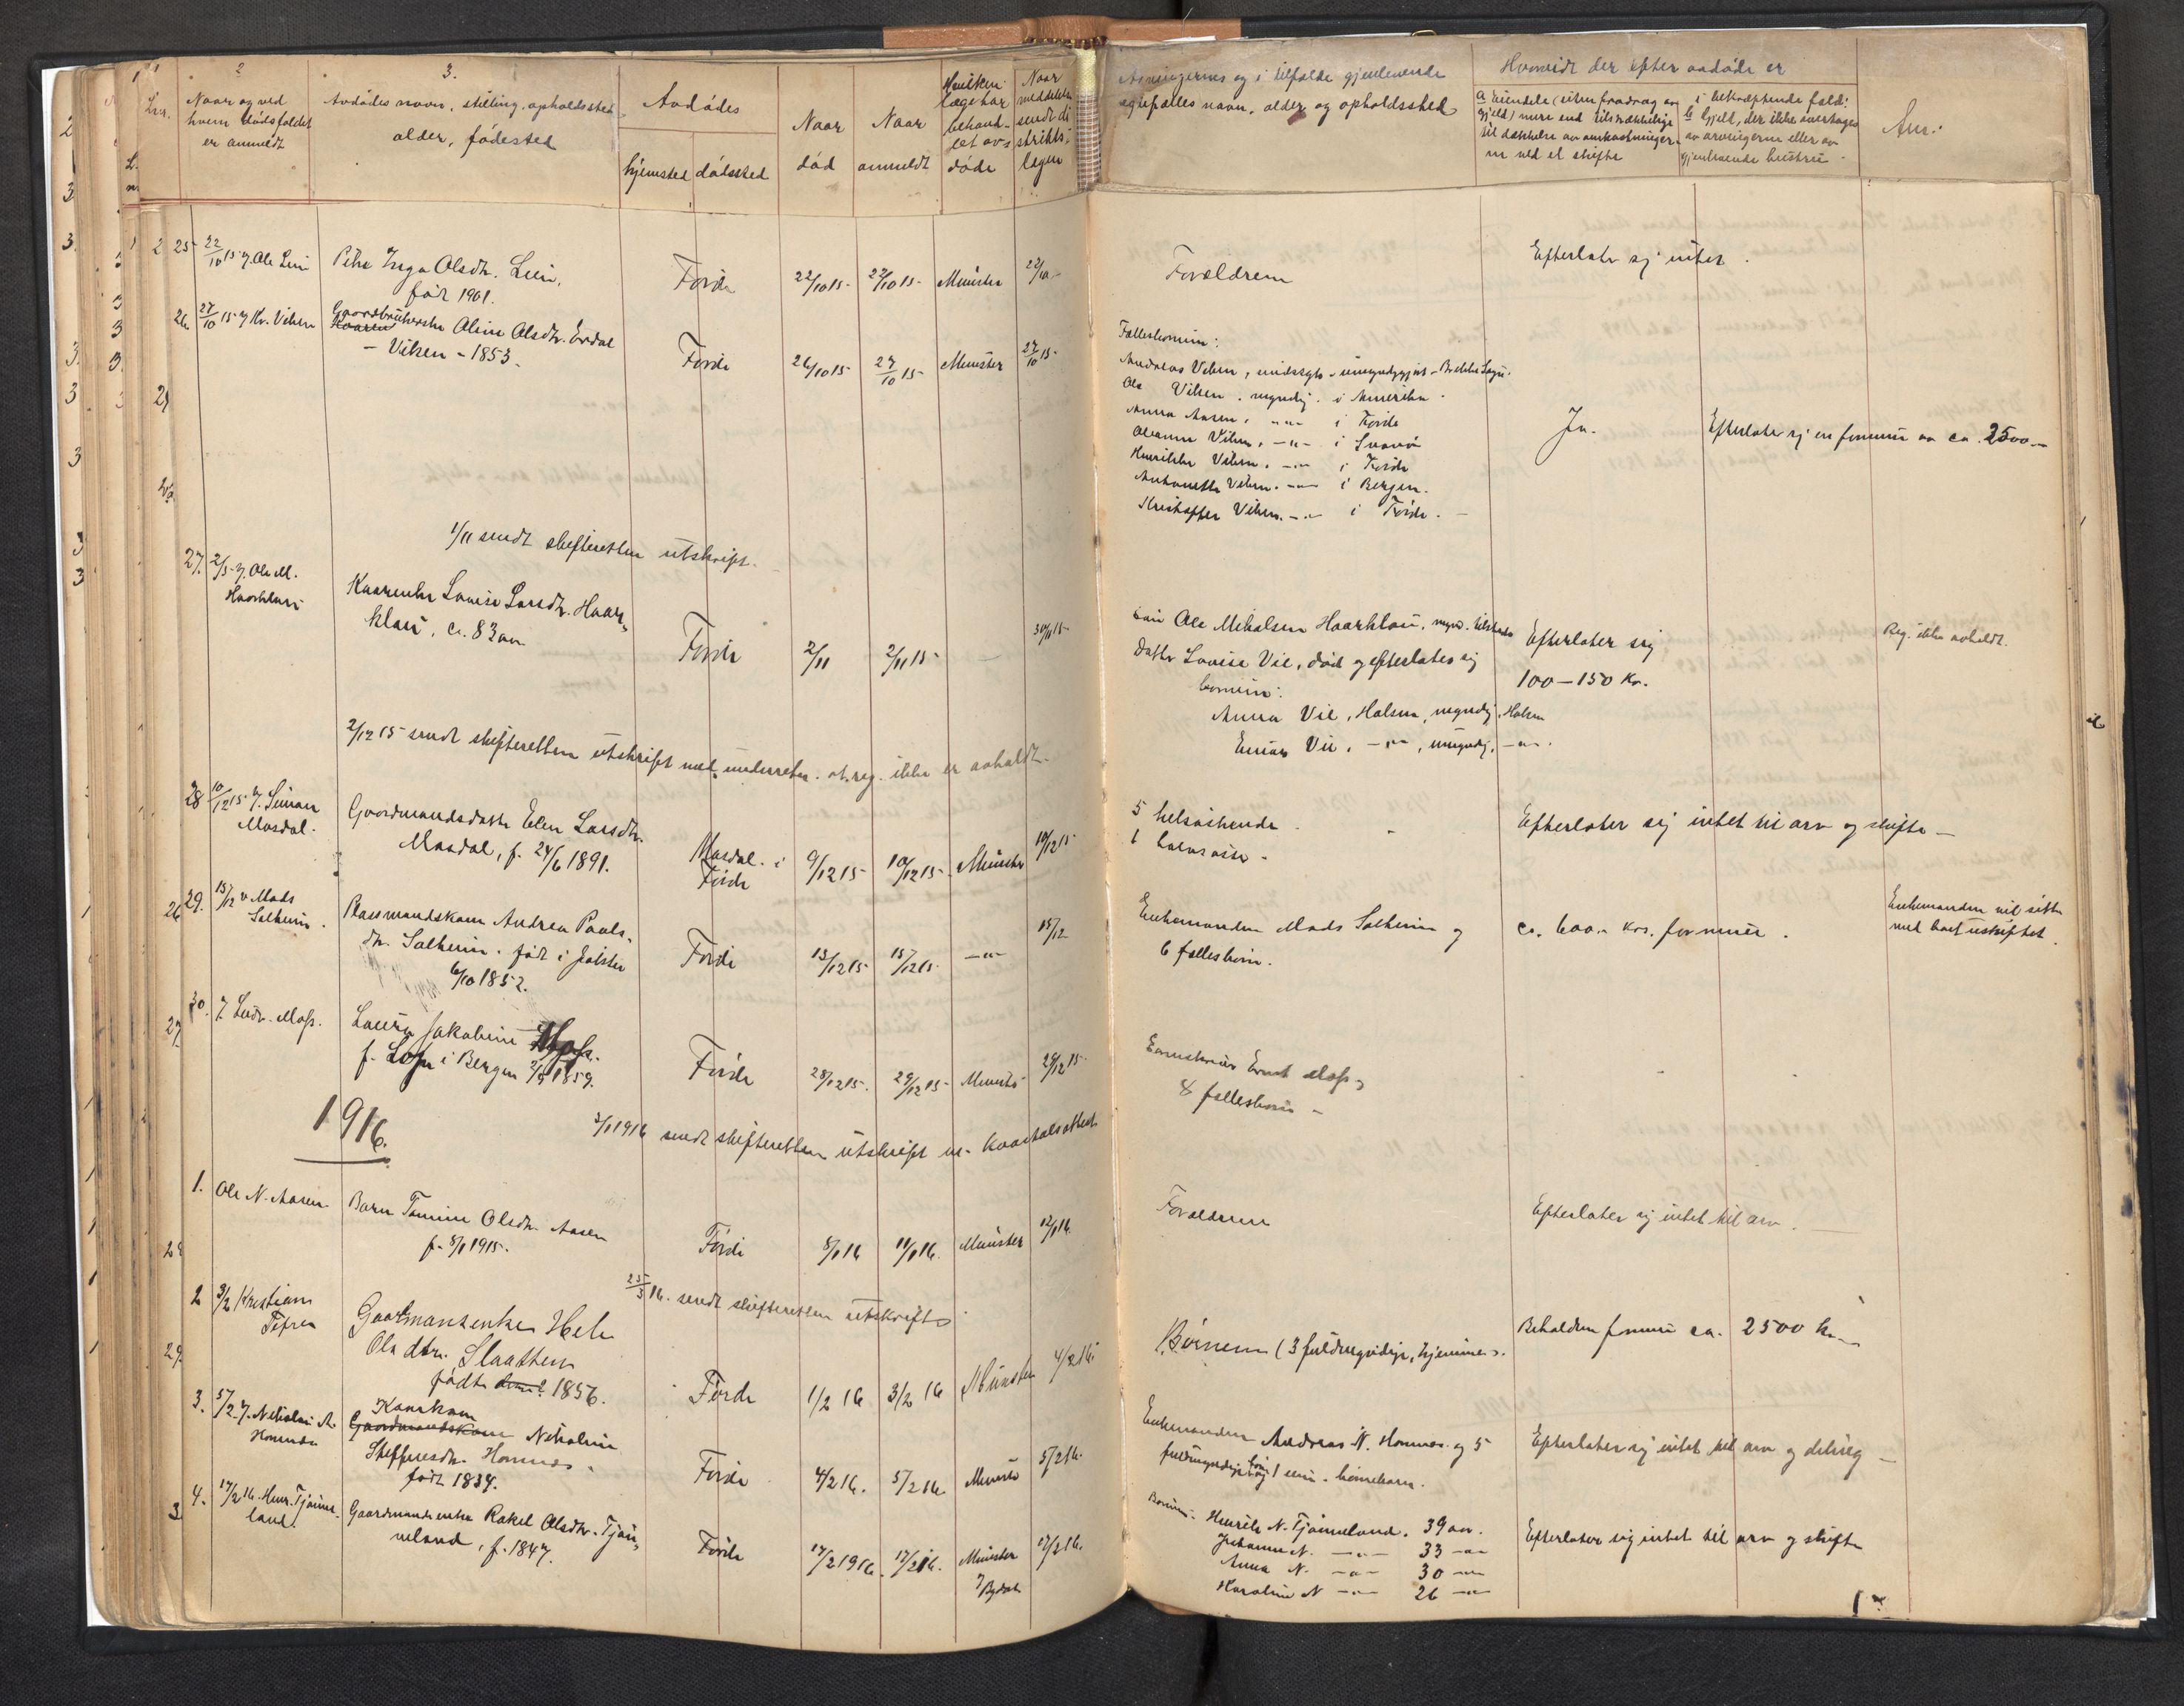 2
Naar og ved
hvem dødsfaldet
er anmeldt
3.
Avdødes navn, stilling, opholdssted
alder, fødested
Avdødes
hjemsted dødssted
Naar
død
Naar
anmeldt
Hvilken
læge har
behand-
let avs
døde
Naar
meddelelse
sendt di
strikts-
lægen
Arvingernes og i tilfælde gjenlevende
egtefælles navn, alder og opholdssted
Hvorvidt der efter avdøde er
a Eiendele (uten fradrag av
gjæld) mere end tilstrækkelige
til dækkelse av omkostninger-
ne ved et skifte
i bekræftende fald:
b Gjæld, der ikke overtages
av arvingerne eller av
gjenlevende hustru.
Anm.
25 22/10 15 v. Ole Lien
Petra Inga Olsdtr. Lien,
født 1901.
Førde 22/10 15 22/10 15 Münster 22/10
Forældrene
Efterlater sig intet.
26. 27/10 15 v. Kr. Viken
Gaardbrukerske Oline Olsdtr. Erdal
- Viken - 1853.
Førde 26/10 15 27/10 15 Münster 27/10 15
Fællesbørnene:
Andreas Viken,
Ole Viken, myndig. i Amerika.
Anna Aasen, -"- i Førde
Oleanna Viken, -"- i Svanø
Henrikke Viken, -"- i Førde
Antonette Viken, -"- i Bergen.
Kristoffer Viken, -"- i Førde.
Ja.
Efterlater sig en formue av ca. 2500.-
1/11 sendt skifteretten utskrift.
27. 2/11 v. Ole M.
Haarklau
Kaarenke Lovise Larsdtr. Haar-
klau, ca. 83 aar
Førde 2/11 2/11 15 - 30/11 15
Ole Mikalsen Haarklau, mynd.
Datter Lovise Vie, død og efterlater sig
børnene:
Anna Vie, Halsen, myndig, Halsen
Einar Vie, -"-, umyndig, -"-.
Efterlater sig
100-150 Kr.
Reg. ikke avholdt.
2/12 15 sendt skifteretten utskrift med underretn. at reg. ikke er avholdt.
28 10/12 15 v. Simon
Mosdal.
Gaardmandsdatter Elen Larsdtr.
Mosdal, f. 24/6 1891.
Mosdal i
Førde
9/12 15 10/12 15 Münster 10/12 15
5 helsøskende
1 halvsøster -
Efterlater sig intet til arv og skifte -
29. 15/12 v. Mads
Solheim.
Plassmandskone Andrea Pauls-
dtr. Solheim. født i Jølster
6/10 1852.
Førde 13/12 15 15/12 15 -"- 15/12
Enkemanden Mads Solheim og
6 fællesbørn.
ca. 600.- krs. formue.
Enkemanden vil sitte
med boet uskiftet.
30. v. Ludv. Moss.
Laura Jakobine Moss.
f. i Bergen 1859.
Førde 28/12 15. 29/12 15 Münster 29/12 15
Ernst Moss,
8 fællesbørn -
1916.
3/1 1916 sendt skifteretten utskrift m. kvartalsattest
1. Ole N. Aasen
Barn Tomine Olsdtr. Aasen
f. 8/1 1915.
Førde 8/1 16 11/1 16. Münster 12/1 16.
Forældrene
Efterlater sig intet til arv.
23/3 16. sendt skifteretten utskrift
2 3/2 Kristian
Tefre
Gaardmansenke Hele
Ols dtr. Slaatten
født 1856.
Førde 1/2 16 3/2 16 Münster 4/2 16.
Børnene (3 fuldmyndige, hjemme).
Beholden formue ca. 2500 kr.
3. 5/2 v. Nikolai A.
Hornnes
Kaarkone
Gaardmandskone Nikoline
Steffensdtr. Hornnes.
født 1834.
Førde 4/2 16. 5/2 16. Münster 5/2 16.
Enkemanden Andreas N. Hornnes og 5
fuldmyndige børn og 1 barnebarn.
Efterlater sig intet til arv og deling -
4. 17/2 16. Henr. Tjønne-
land.
Gaardmandsenke Rakel Olsdtr. Tjøn-
neland, f. 1847.
Førde 17/2 1916. 17/2 16. Münster 17/2 16.
Børnene:
Henrik N. Tjønneland. 39 aar.
Johanne N. -"- 33 -"-
Anna N. -"- 30 -"-
Karoline N -"- 26 -"-
Efterlater sig intet til arv og skifte